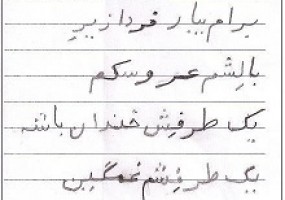 برام بیار فردا زیرِ
بالِشم عروسکم
یک طرفِش خندان باشه
یک طرفِشم غمگین